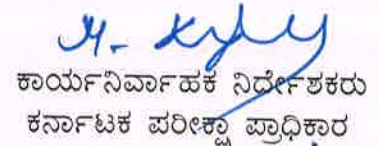 ಕಾರ್ಯನಿರ್ವಾಹಕ ನಿರ್ದೇಶಕರು
ಕರ್ನಾಟಕ ಪರೀಕ್ಷಾ ಪ್ರಾಧಿಕಾರ